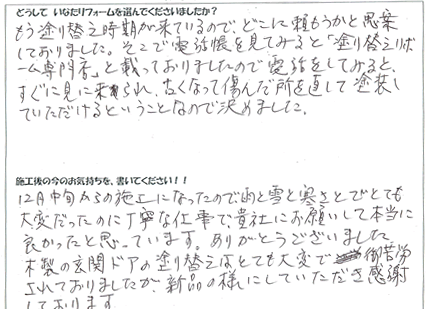 どうして いなだリフォームを選んでくださいましたか？
もう塗り替え時期が来ているので、どこに頼もうかと思案
しておりました。そこで電話帳を見てみると「塗り替えリホ
ーム専門店」と載っておりましたので電話をしてみると、
すぐに見に来られ、古くなって傷んだ所を直して塗装し
ていただけるということなので決めました。
施工後の今のお気持ちを、書いてください！！
12月中旬からの施工になったので雨と雪と寒さとでとても
大変だったのに丁寧な仕事で、貴社にお願いして本当に
良かったと思っています。ありがとうございました
木製の玄関ドアの塗り替えはとても大変で御苦労
されておりましたが、新品の様にしていただき感謝
しております